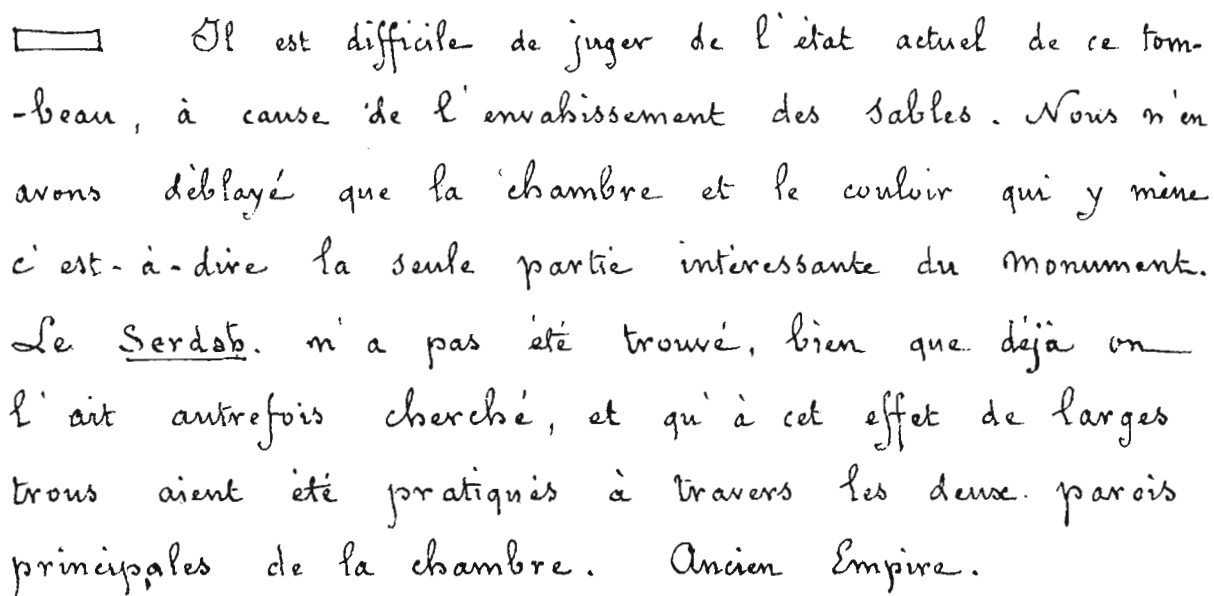 Il est difficile de juger de l'état actuel de ce tom-
-beau, à cause de l'envahissement des sables. Nous n'en
avons déblayé que la chambre et le couloir qui y mène
c'est-à-dire la seule partie intéressante du monument.
Le Serdab. n'a pas été trouvé, bien que déjà on
l'ait autrefois cherché, et qu'à cet effet de larges
trous aient été pratiqués à travers les deux parois
principales de la chambre. Ancien Empire.